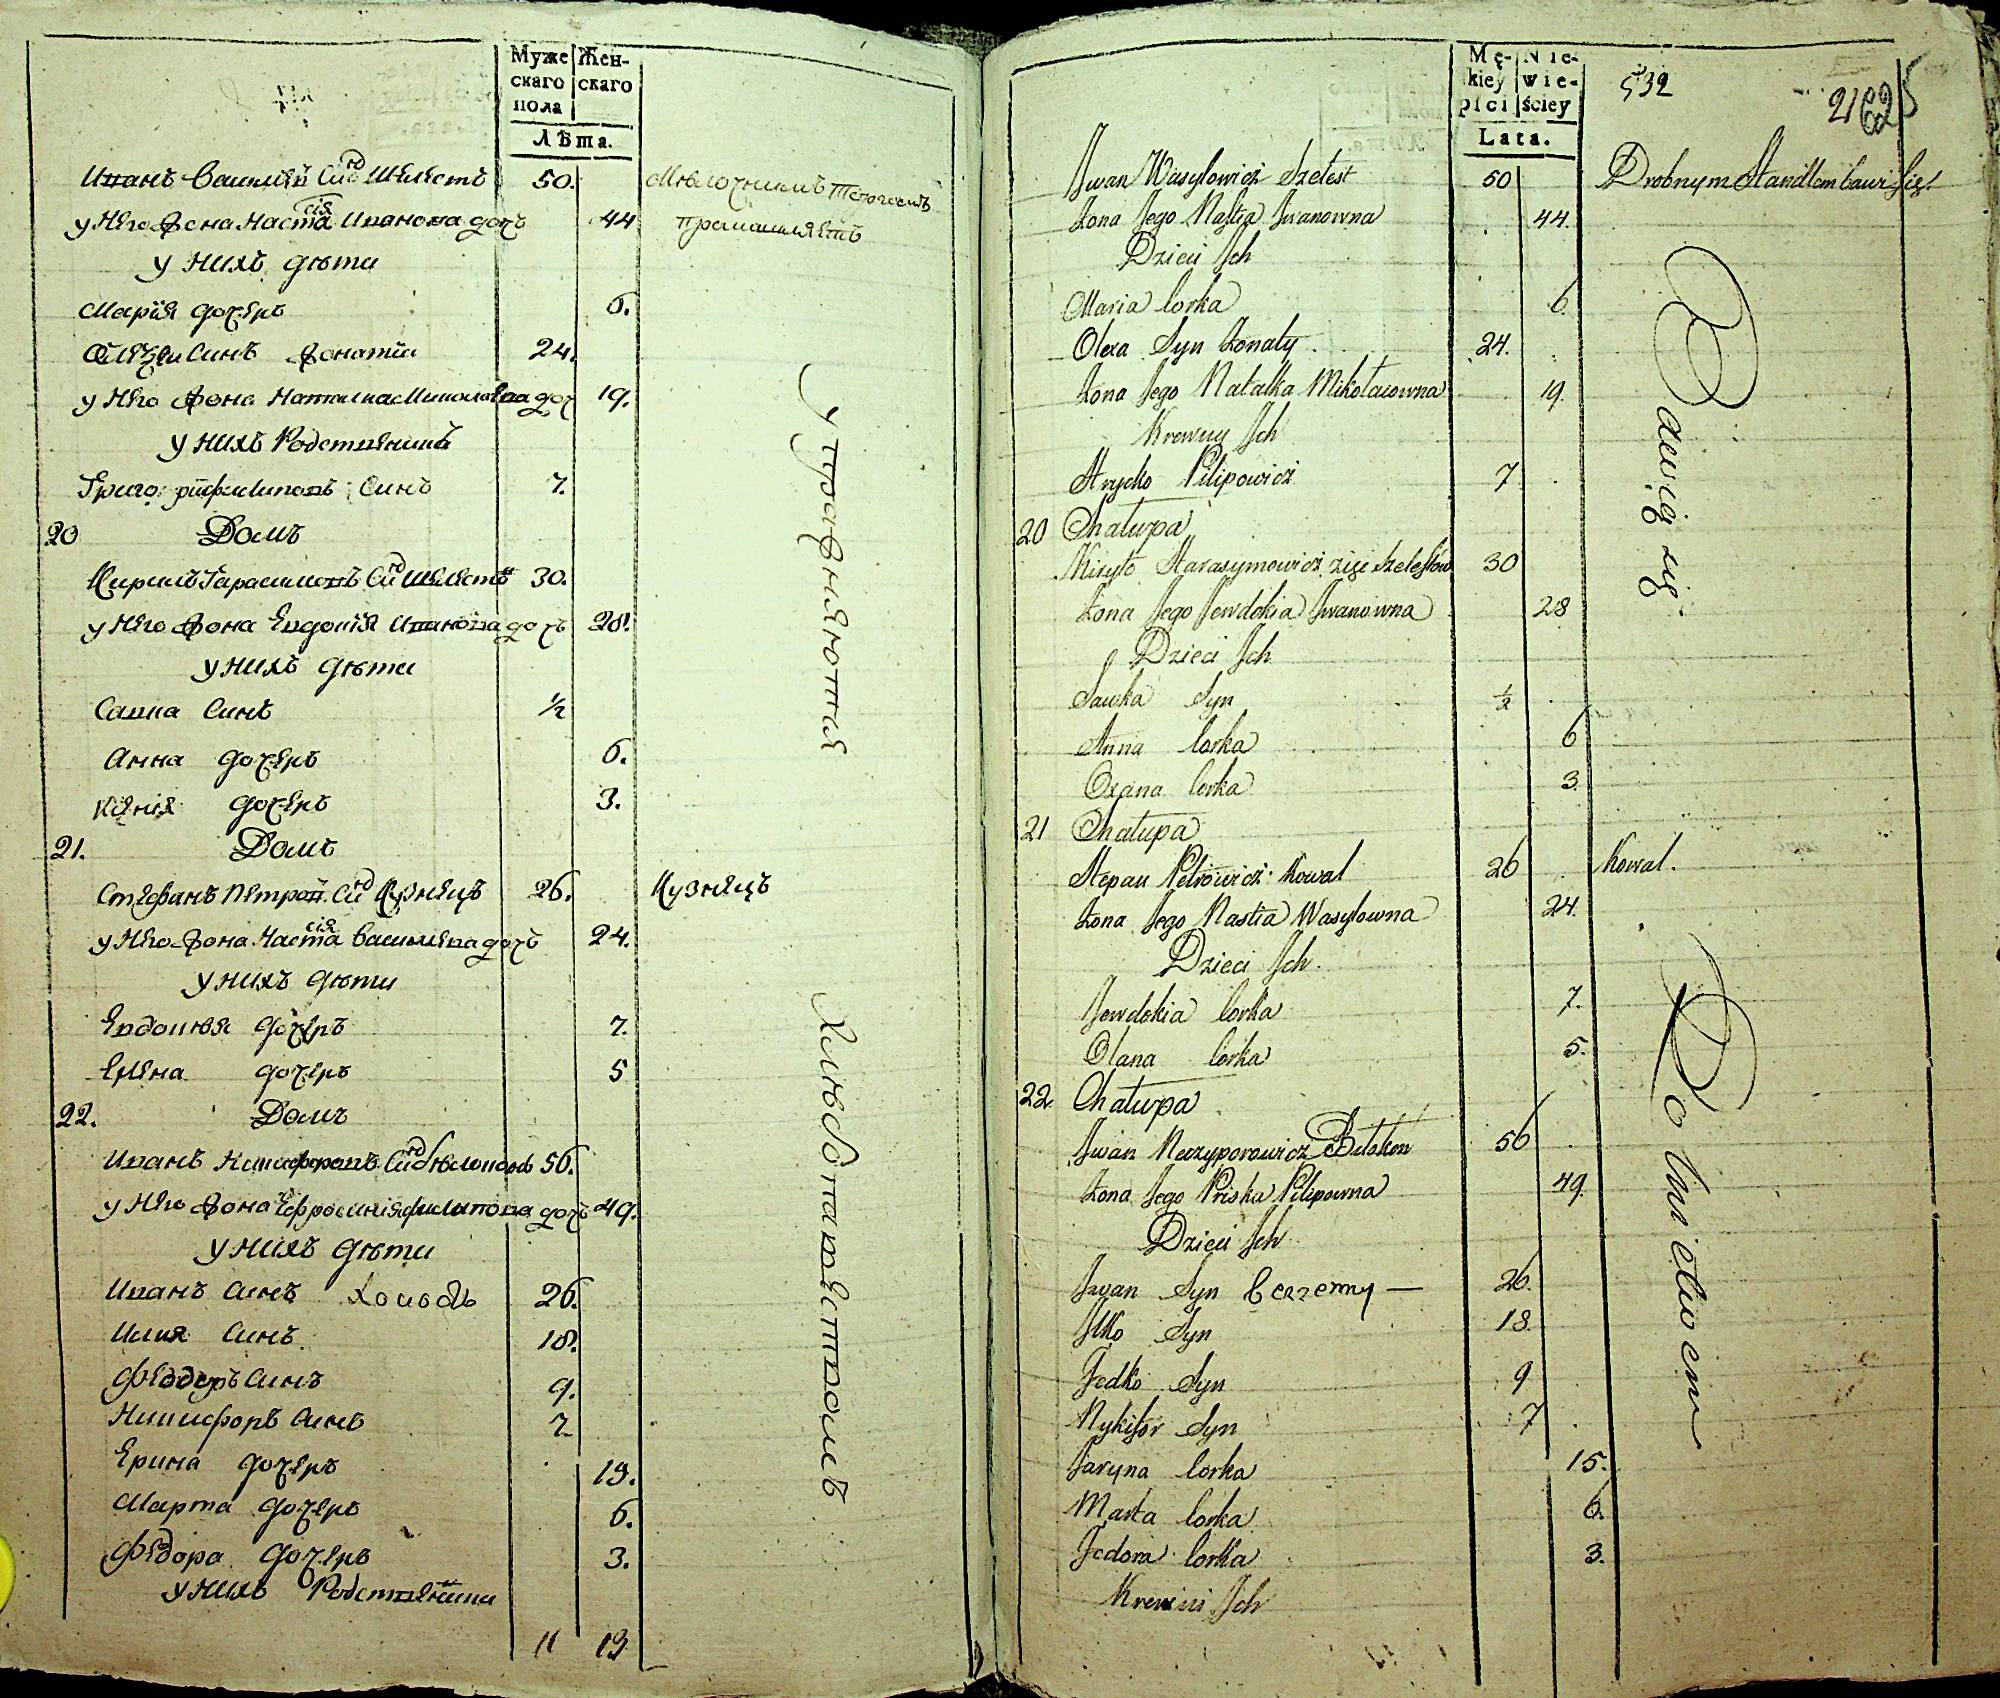 Муже Жен-
скаго скаго
пола
Лѣта.
Иванъ Васильев Синъ Шелестъ 50. Мѣлочнимъ торгомъ
у него жона Настасія Иванова дочъ 44 промишляетъ
у нихъ дѣти
Марія дочерь 6.
Алексѣй Синъ жонатій 24.
у него жона Наталка Миколаева доч 19.
у нихъ Родственникъ
Григорій Филиповъ Синъ 7.
20 Домъ
Кирилъ Гарасимовъ Синъ Шелестъ 30.
у него жона Евдокія Иванова дочъ 28.
у нихъ дѣти
Савка Синъ ½
Анна дочерь 6.
Ксенія дочерь 3.
21. Домъ
Стефанъ Петров Синъ Кузнецъ 26. Кузнецъ
у него жона Настасія Васильева дочъ 24.
у нихъ дѣти
Евдокѣя дочерь 7.
Елена дочерь 5
22. Домъ
Иванъ Никифоровъ Синъ Бѣлоконь 56.
у него жона Ефросинія Филипова дочъ 49.
у нихъ дѣти
Иванъ Синъ 26.
Илия Синъ 18.
Феодоръ Синъ 9.
Никифоръ Синъ 7
Ерина дочерь 15.
Марта дочерь 6.
Федора дочерь 3.
у нихъ Родственники
11 13
упражняются
Хлѣбопашествомъ
Mę- Nie-
kiey wie-
płci ściey
Lata.
532
2162
Iwan Wasylowicz Szelest 50 Drobnym Handlem bawi się
Żona Jego Nastia Iwanowna 44.
Dzieci Ich
Maria Corka 6
Olexa Syn Żonaty 24.
Żona Jego Natalka Mikołaiowna 19.
Krewny Ich
Hrycko Pilipowicz 7
20 Chałupa
Kiryło Harasymowicz zięć Szelestów 30
Żona Jego Jewdokia Iwanowna 28
Dzieci Ich
Sawka Syn ½
Anna Corka 6
Oxana Corka 3
21 Chałupa
Stepan Petrowicz Kowal 26 Kowal.
Żona Jego Nastia Wasylowna 24.
Dzieci Ich.
Jewdokia Corka 7.
Olana Corka 5.
22 Chałupa
Iwan Neczyporowicz Biłokon 56
Żona Jego Priska Pilipowna 49.
Dzieci Ich
Iwan Syn 26.
Ilko Syn 18.
Fedko Syn 9
Nykifor Syn 7
Jaryna Corka 15.
Marta Corka 6.
Fedora Corka 3.
Krewni Ich
Bawią się
Rolnictwem